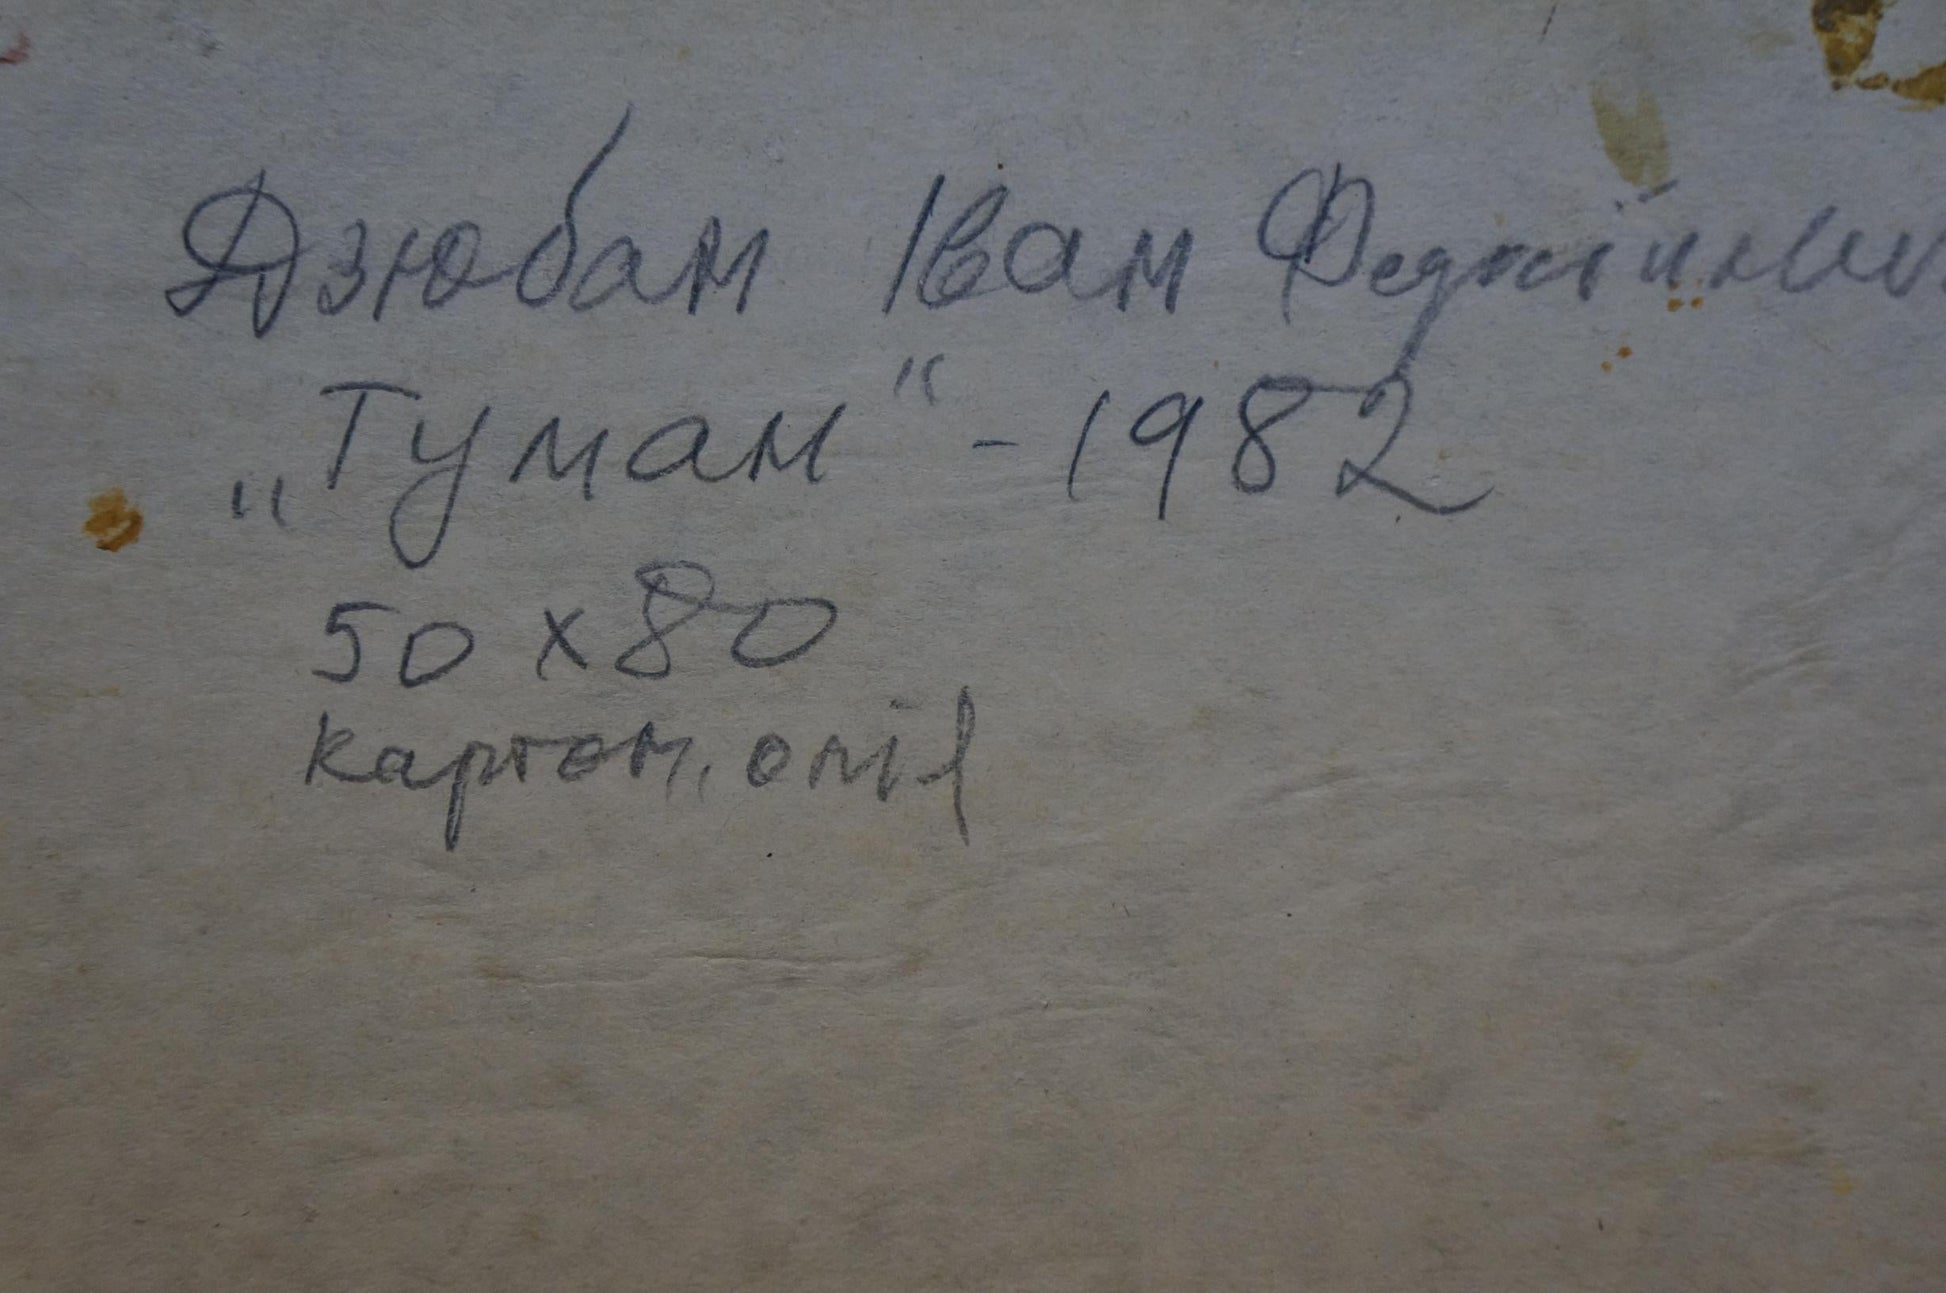 Дзюбан Іван
„Туман“ - 1982
50 х 80
картон, олія